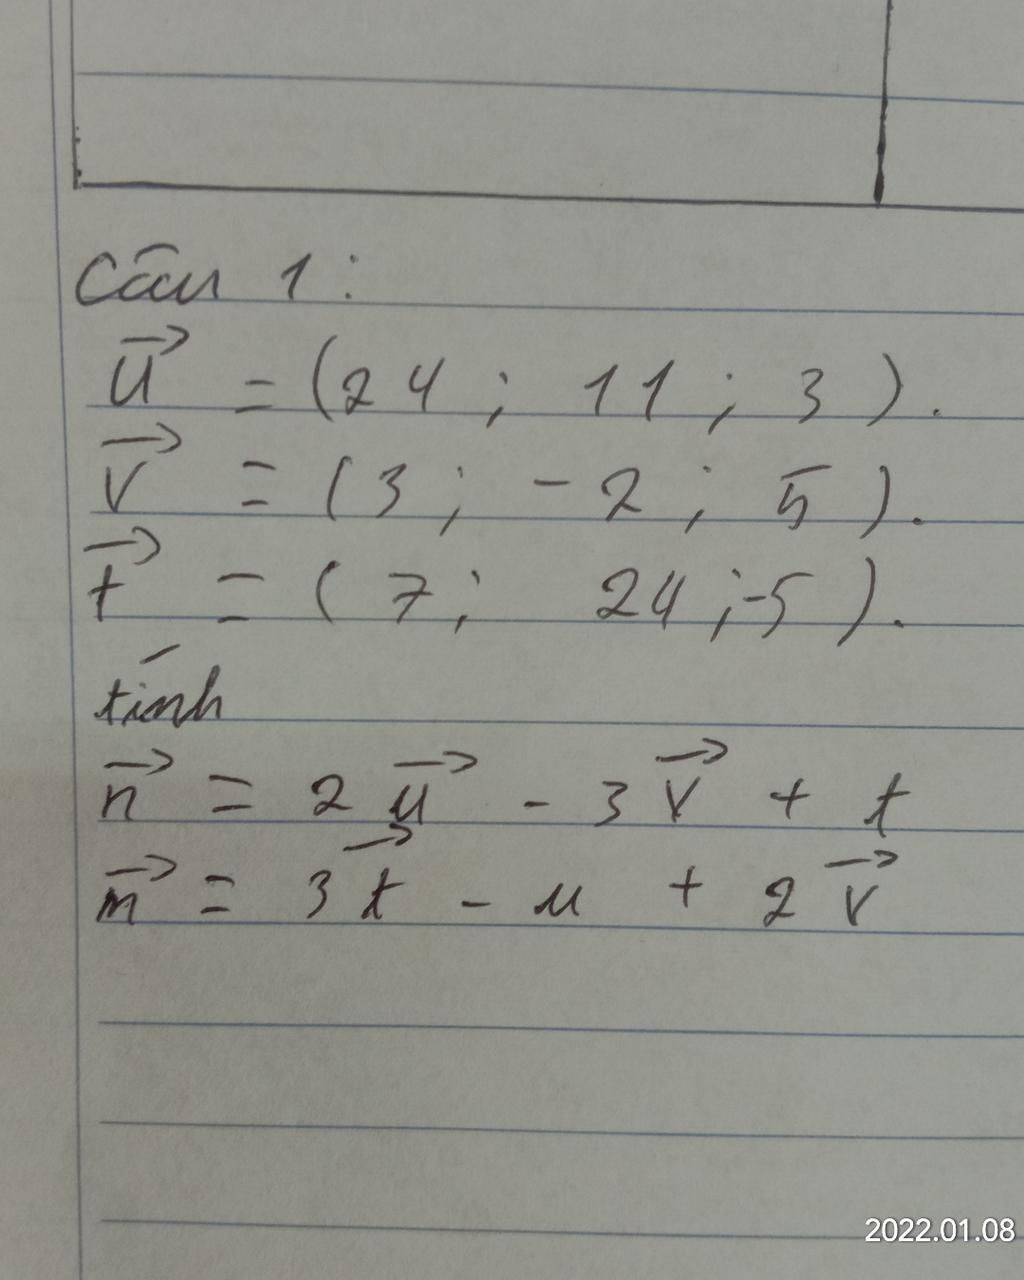 Câu 1:
u⃗ = (24 ; 11 ; 3).
v⃗ = (3 ; -2 ; 5).
t⃗ = ( 7 ; 24 ; -5 ).
tính
n⃗ = 2 u⃗ - 3 v⃗ + t
m⃗ = 3 t⃗ - u + 2 v⃗
2022.01.08